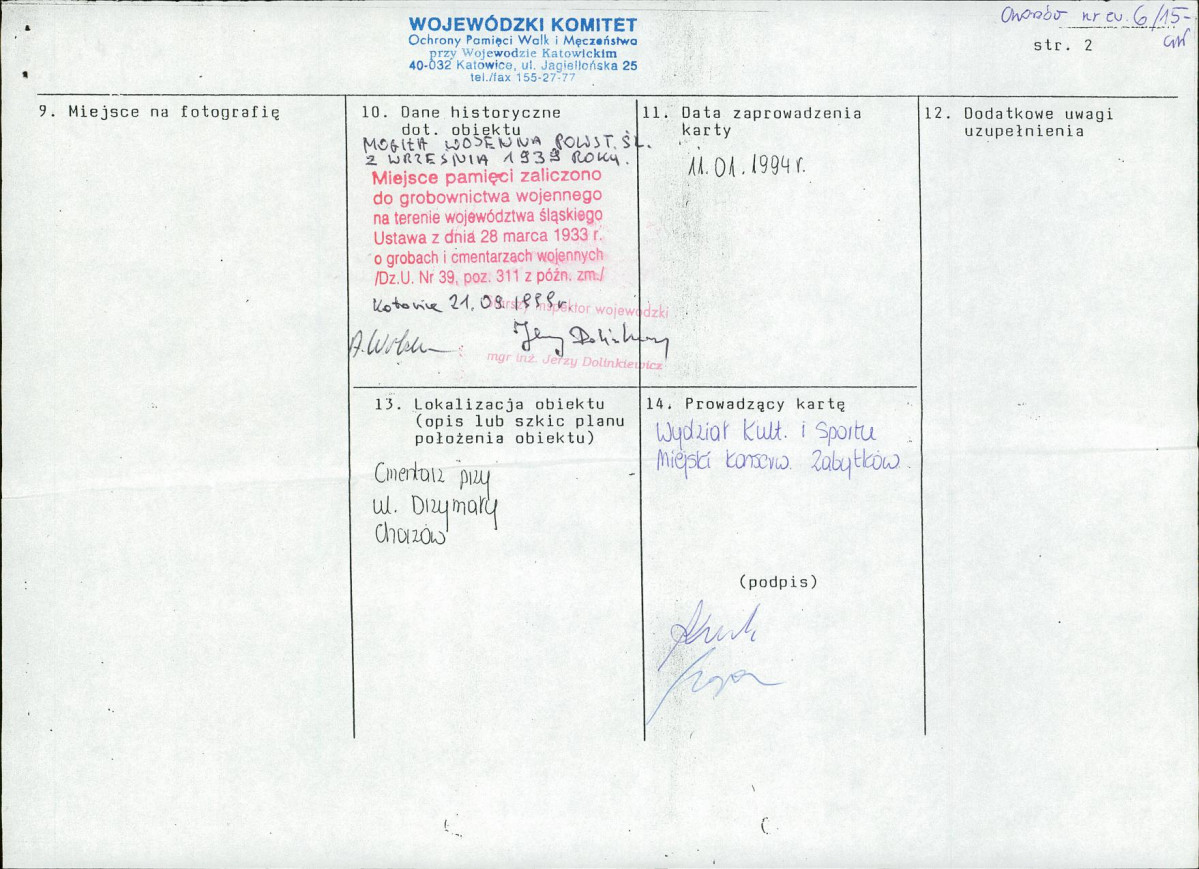 WOJEWÓDZKI KOMITET
Ochrony Pamięci Walk i Męczeństwa
przy Wojewodzie Katowickim
40-032 Katowice, ul. Jagiellońska 25
tel./fax 155-27-77
Chorzów nr ew. 6/15-
str. 2
9. Miejsce na fotografię
10. Dane historyczne
dot. obiektu
MOGIŁA WOJENNA POWST. ŚL.
Z WRZEŚNIA 1939 ROKU.
Miejsce pamięci zaliczono
do grobownictwa wojennego
na terenie województwa śląskiego
Ustawa z dnia 28 marca 1933 r.
o grobach i cmentarzach wojennych
/Dz.U. Nr 39, poz. 311 z późn. zm./
Katowice 21.09.1999r.
Starszy inspektor wojewódzki
Jerzy Dolinkiewicz
mgr inż. Jerzy Dolinkiewicz
11. Data zaprowadzenia
karty
11.01.1994r.
12. Dodatkowe uwagi
uzupełnienia
13. Lokalizacja obiektu
(opis lub szkic planu
położenia obiektu)
Cmentarz przy
ul. Drzymały
Chorzów
14. Prowadzący kartę
Wydział Kult. i Sportu
Miejski Konserw. Zabytków.
(podpis)